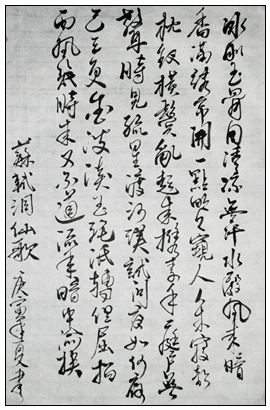 冰肌玉骨自清涼無汗水殿風來暗
香滿繡簾開一點明月窺人人未寢欹
枕釵橫鬢亂起來攜素手庭戶無
聲時見疏星渡河漢試問夜如何夜
已三更金波淡玉繩低轉但屈指
西風幾時來又不道流年暗中偷換
蘇軾洞仙歌 庚寅年夏書